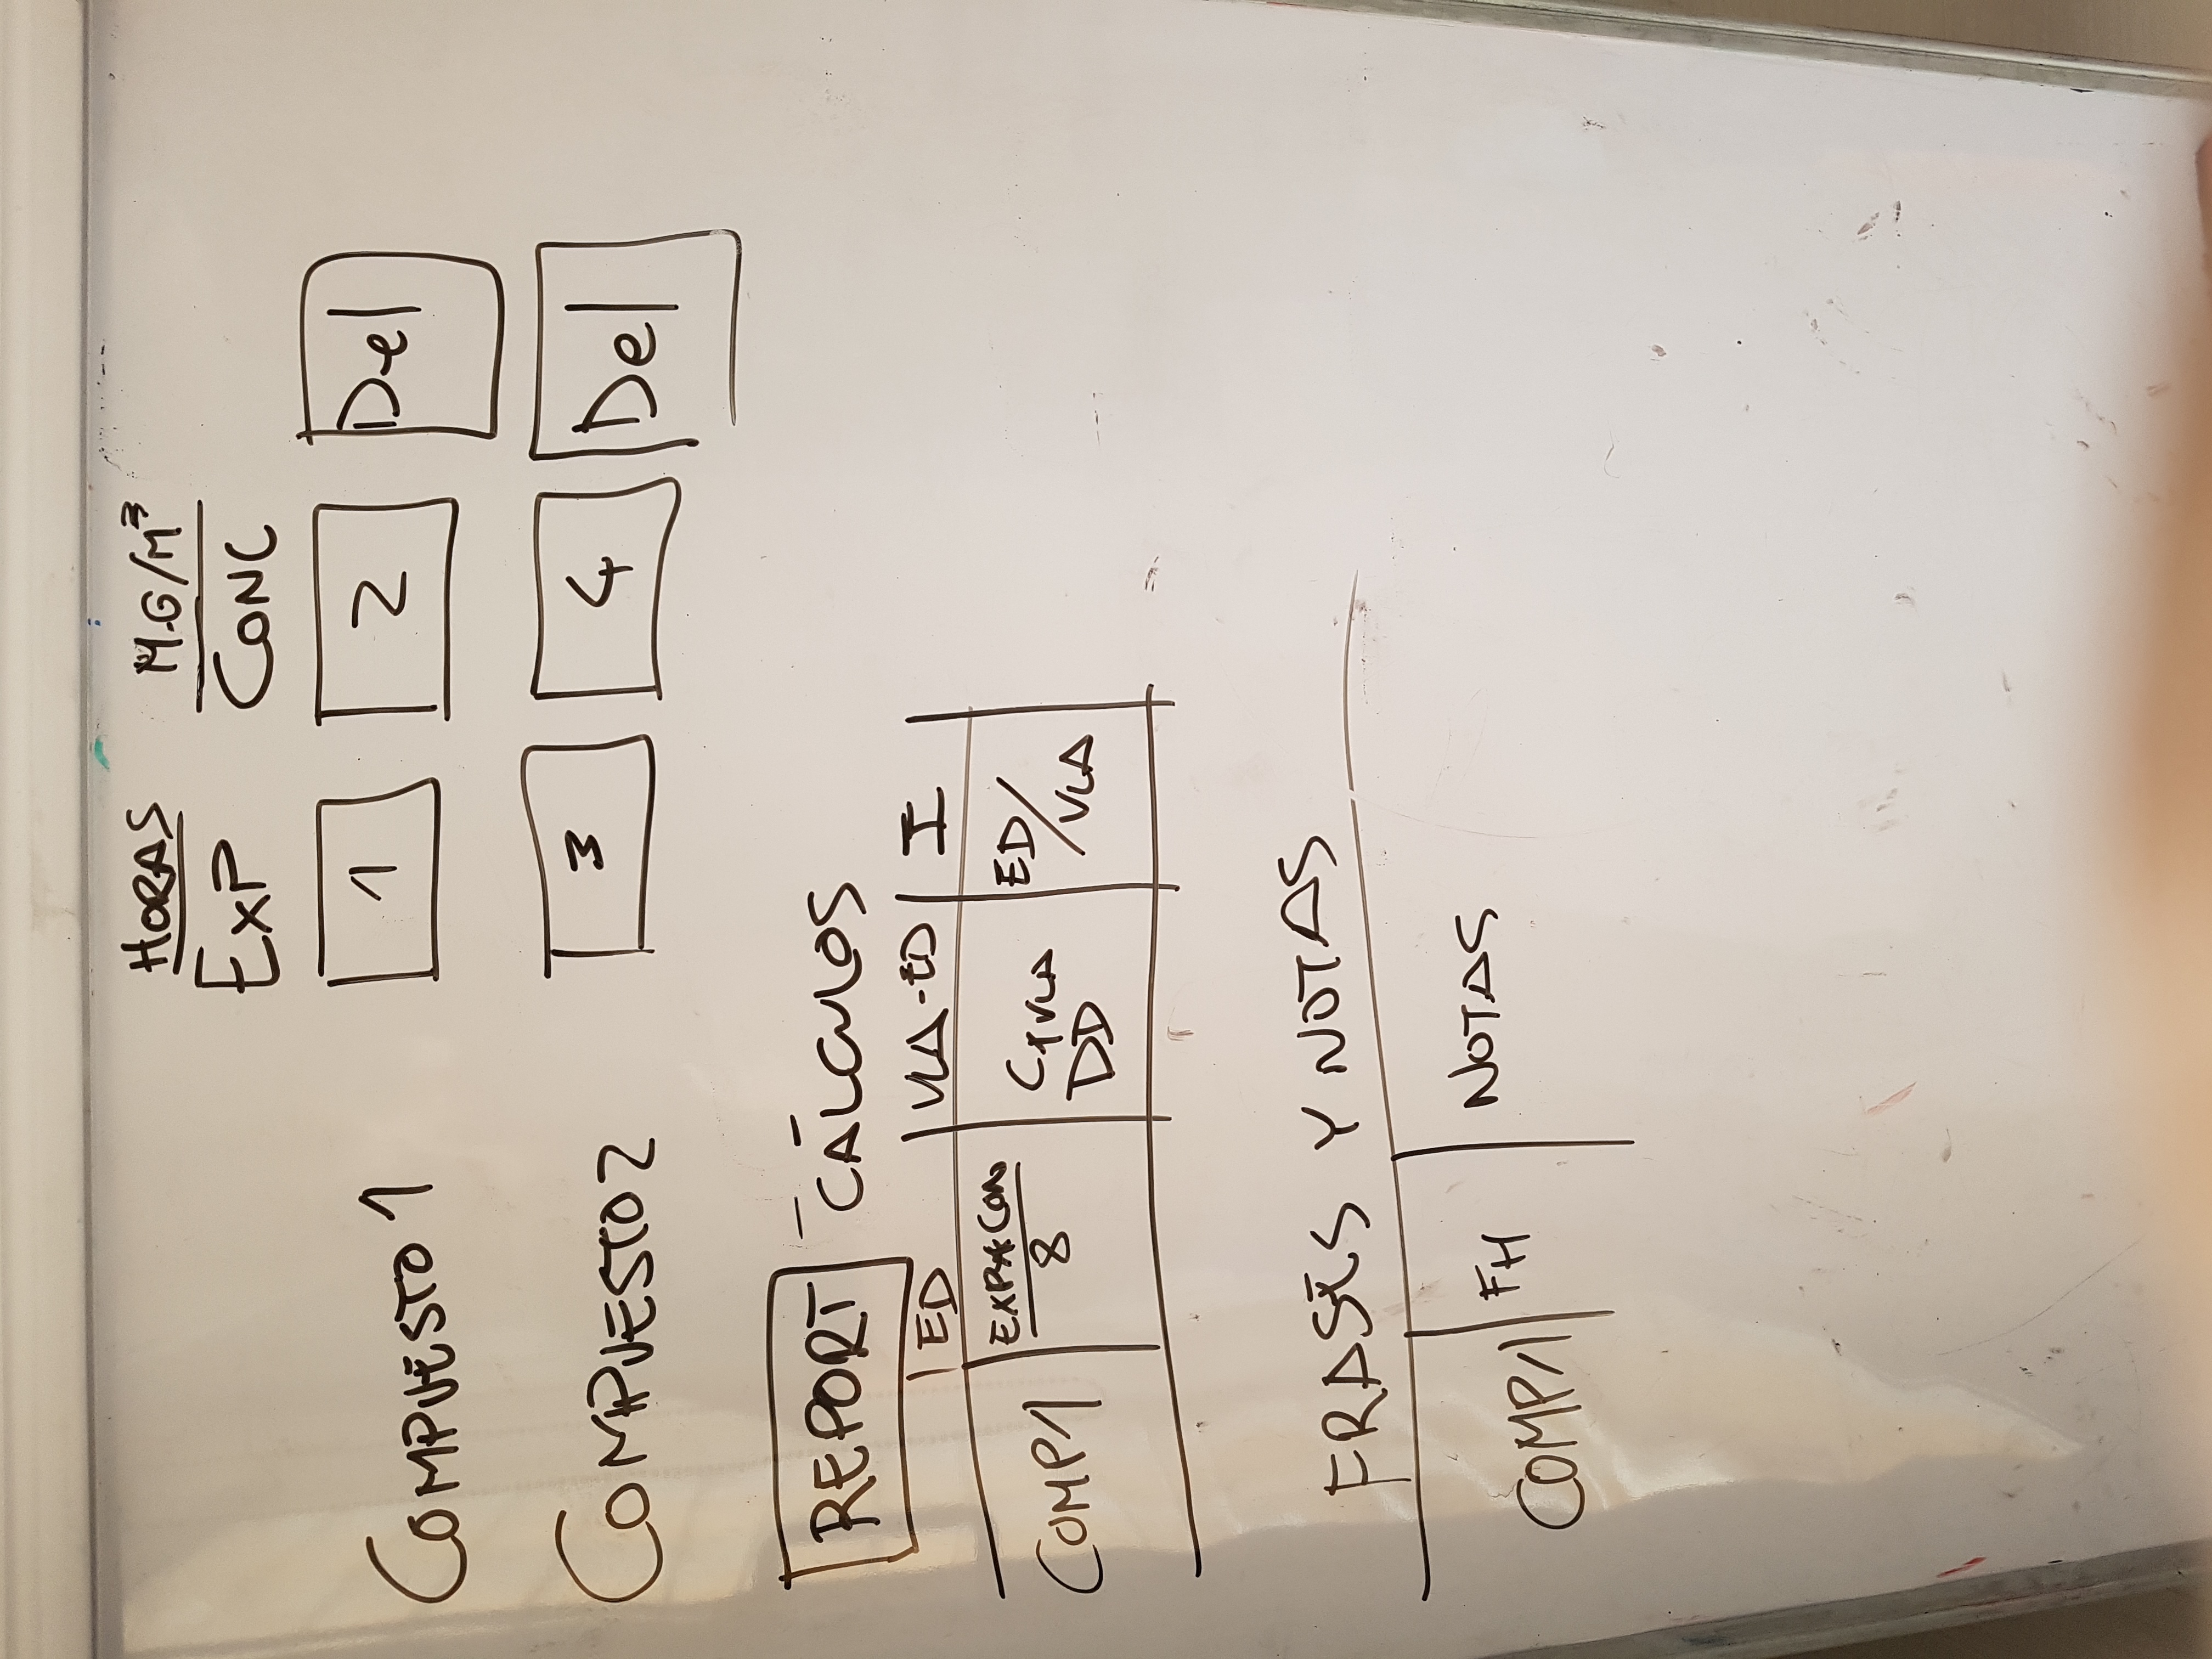 HORAS M.G/M³
EXP CONC
COMPUESTO 1 1 2 Del
COMPUESTO 2 3 4 Del
REPORT CÁLCULOS
ED VLA-ED I
COMP1 EXP*CON/8 VLA DD ED/VLA
FRASES Y NOTAS
COMP1 FH NOTAS